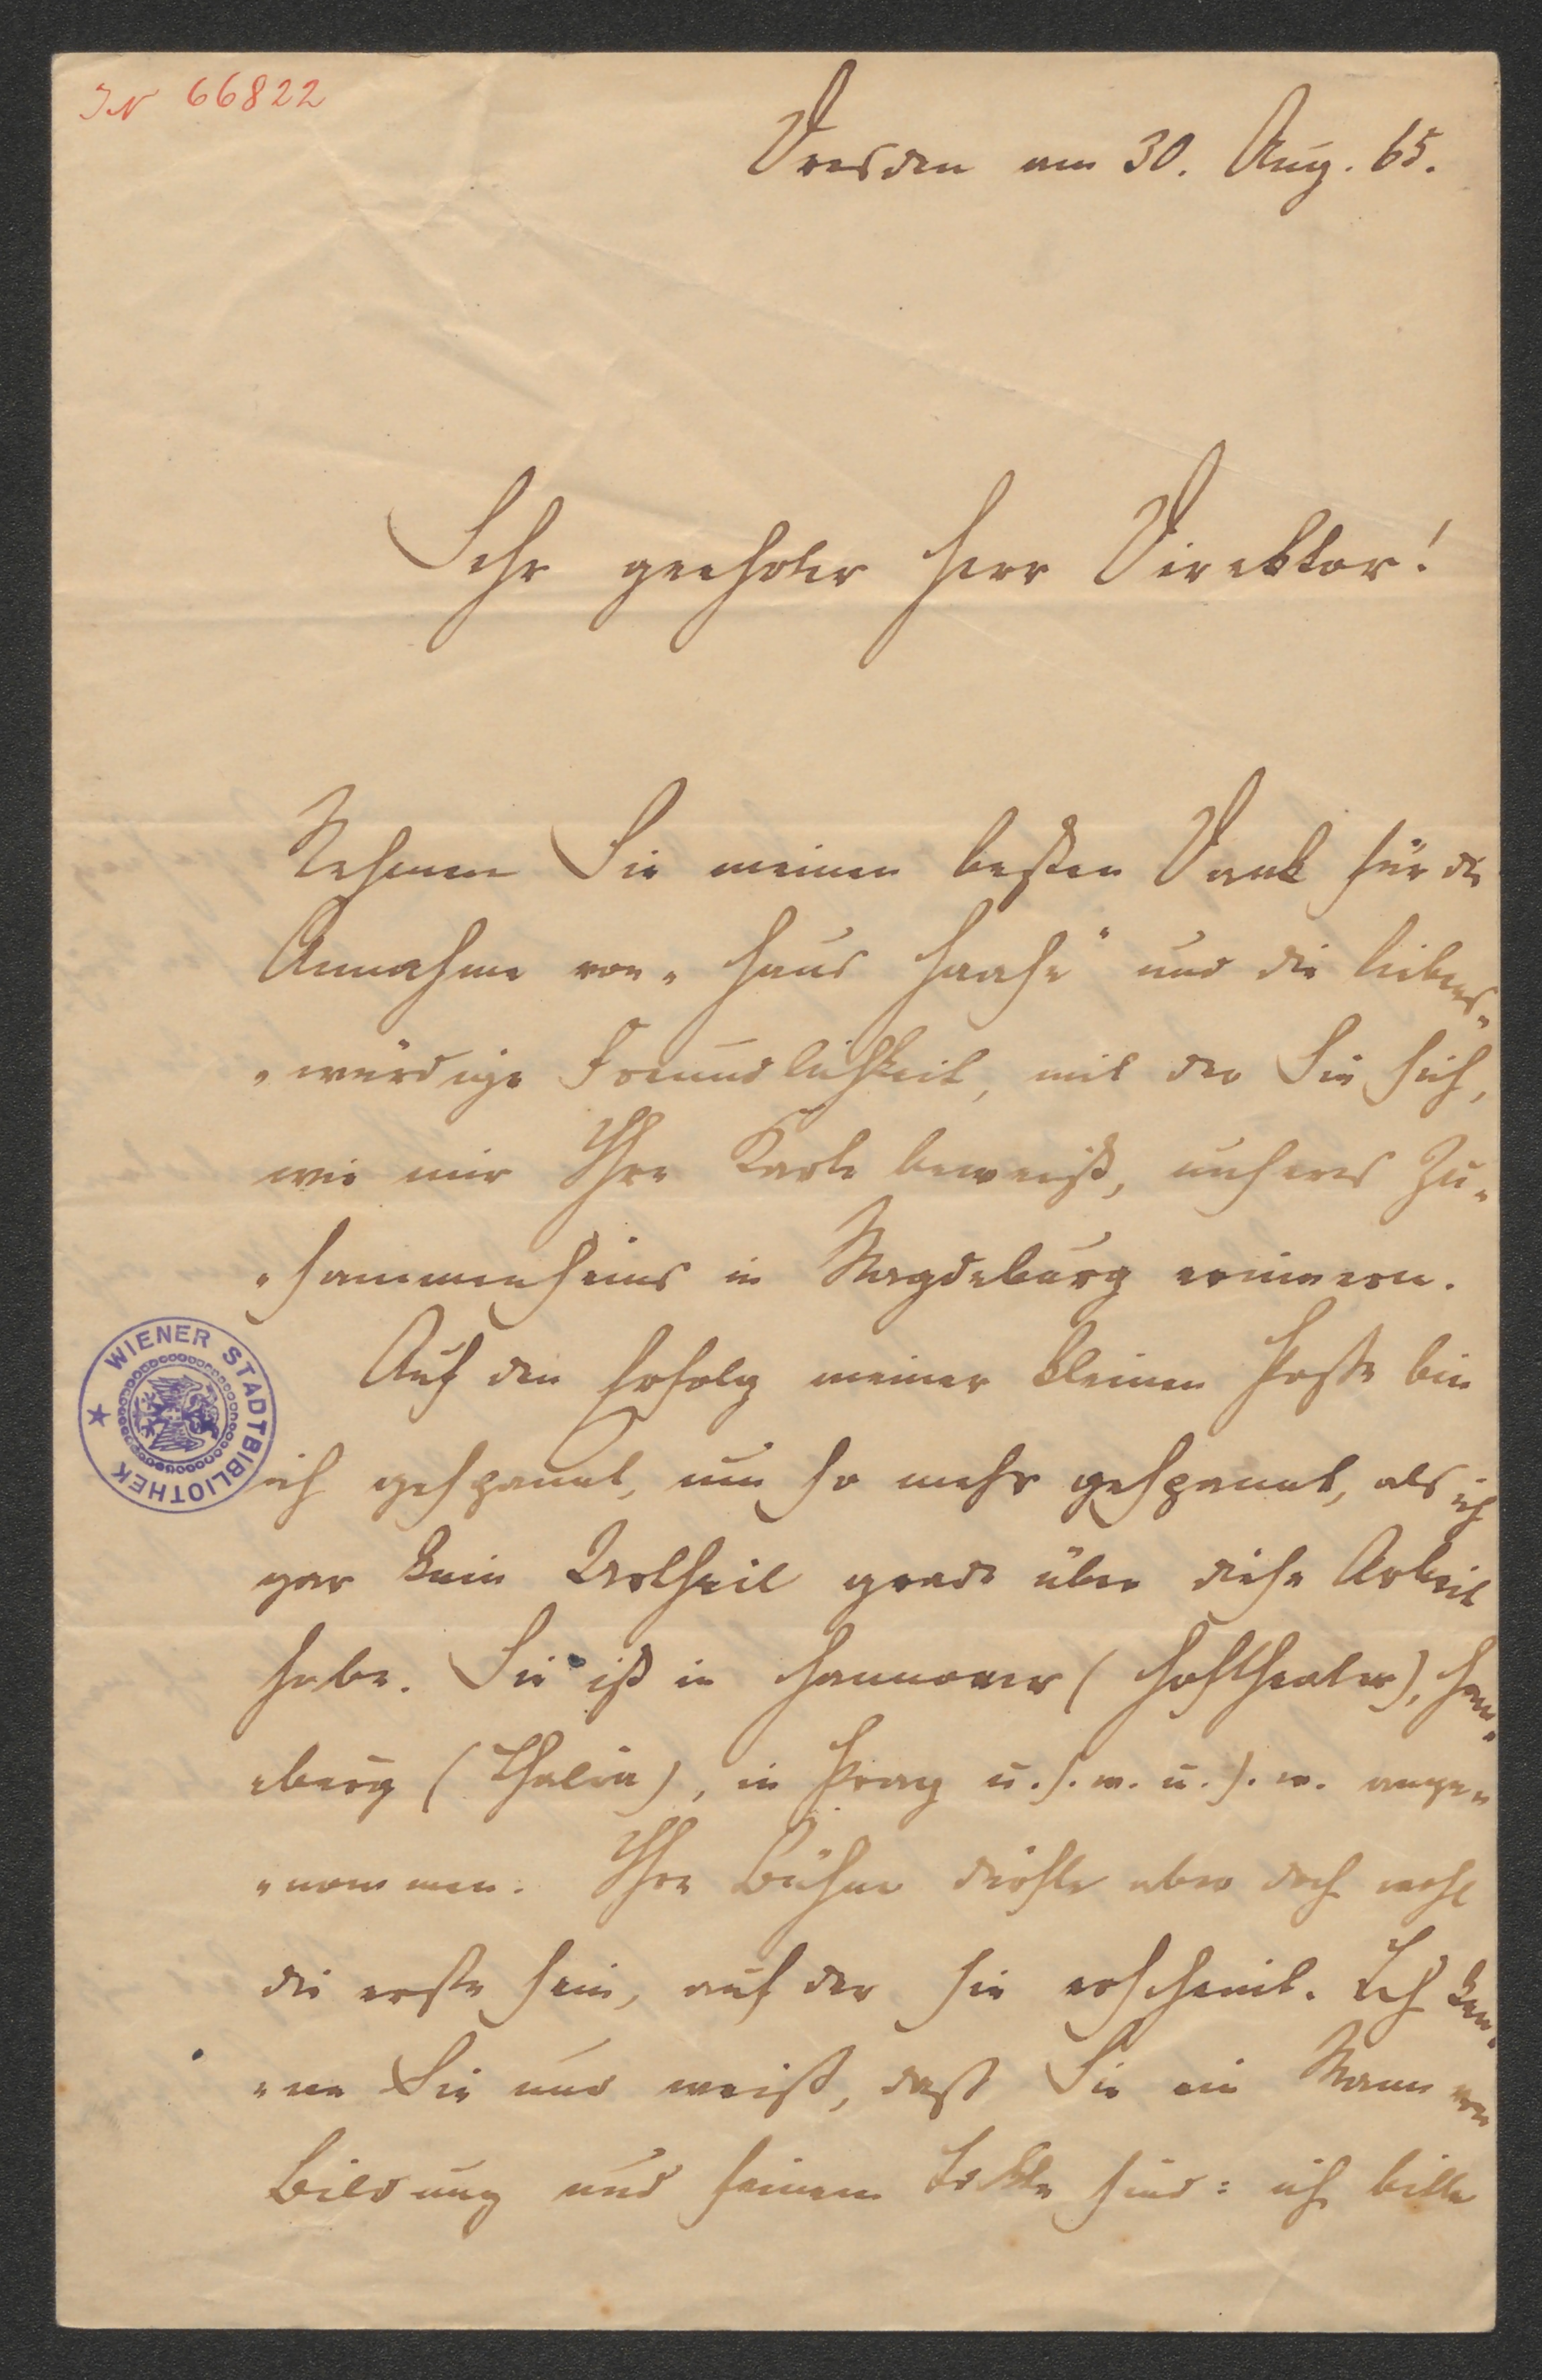 JN 66822
Dresden am 30. Aug. 65.
Sehr geehrter Herr Direktor!
Nehmen Sie meinen besten Dank für die
Annahme von „Haus Haase" und die liebens„
„würdige Freundlichkeit, mit der Sie sich,
wie mir Ihre Karte beweist, unseres Zu„
„sammenseins in Magdeburg erinnern.
Auf den Erfolg meiner kleinen Posse bin
ich gespannt, um so mehr gespannt, als ich
gar kein Urtheil grade über diese Arbeit
habe. Sie ist in Hannover (Hoftheater), Ham„
„burg (Thalia), in Prag u.s.w. u.s.w. ange„
„nommen. Ihre Bühne dürfte aber doch wohl
die erste sein, auf der sie erscheint. Ich ken„
„ne Sie und weiß, daß Sie ein Mann von
Bildung und feinem Takte sind: ich bitte
WIENER STADTBIBLIOTHEK